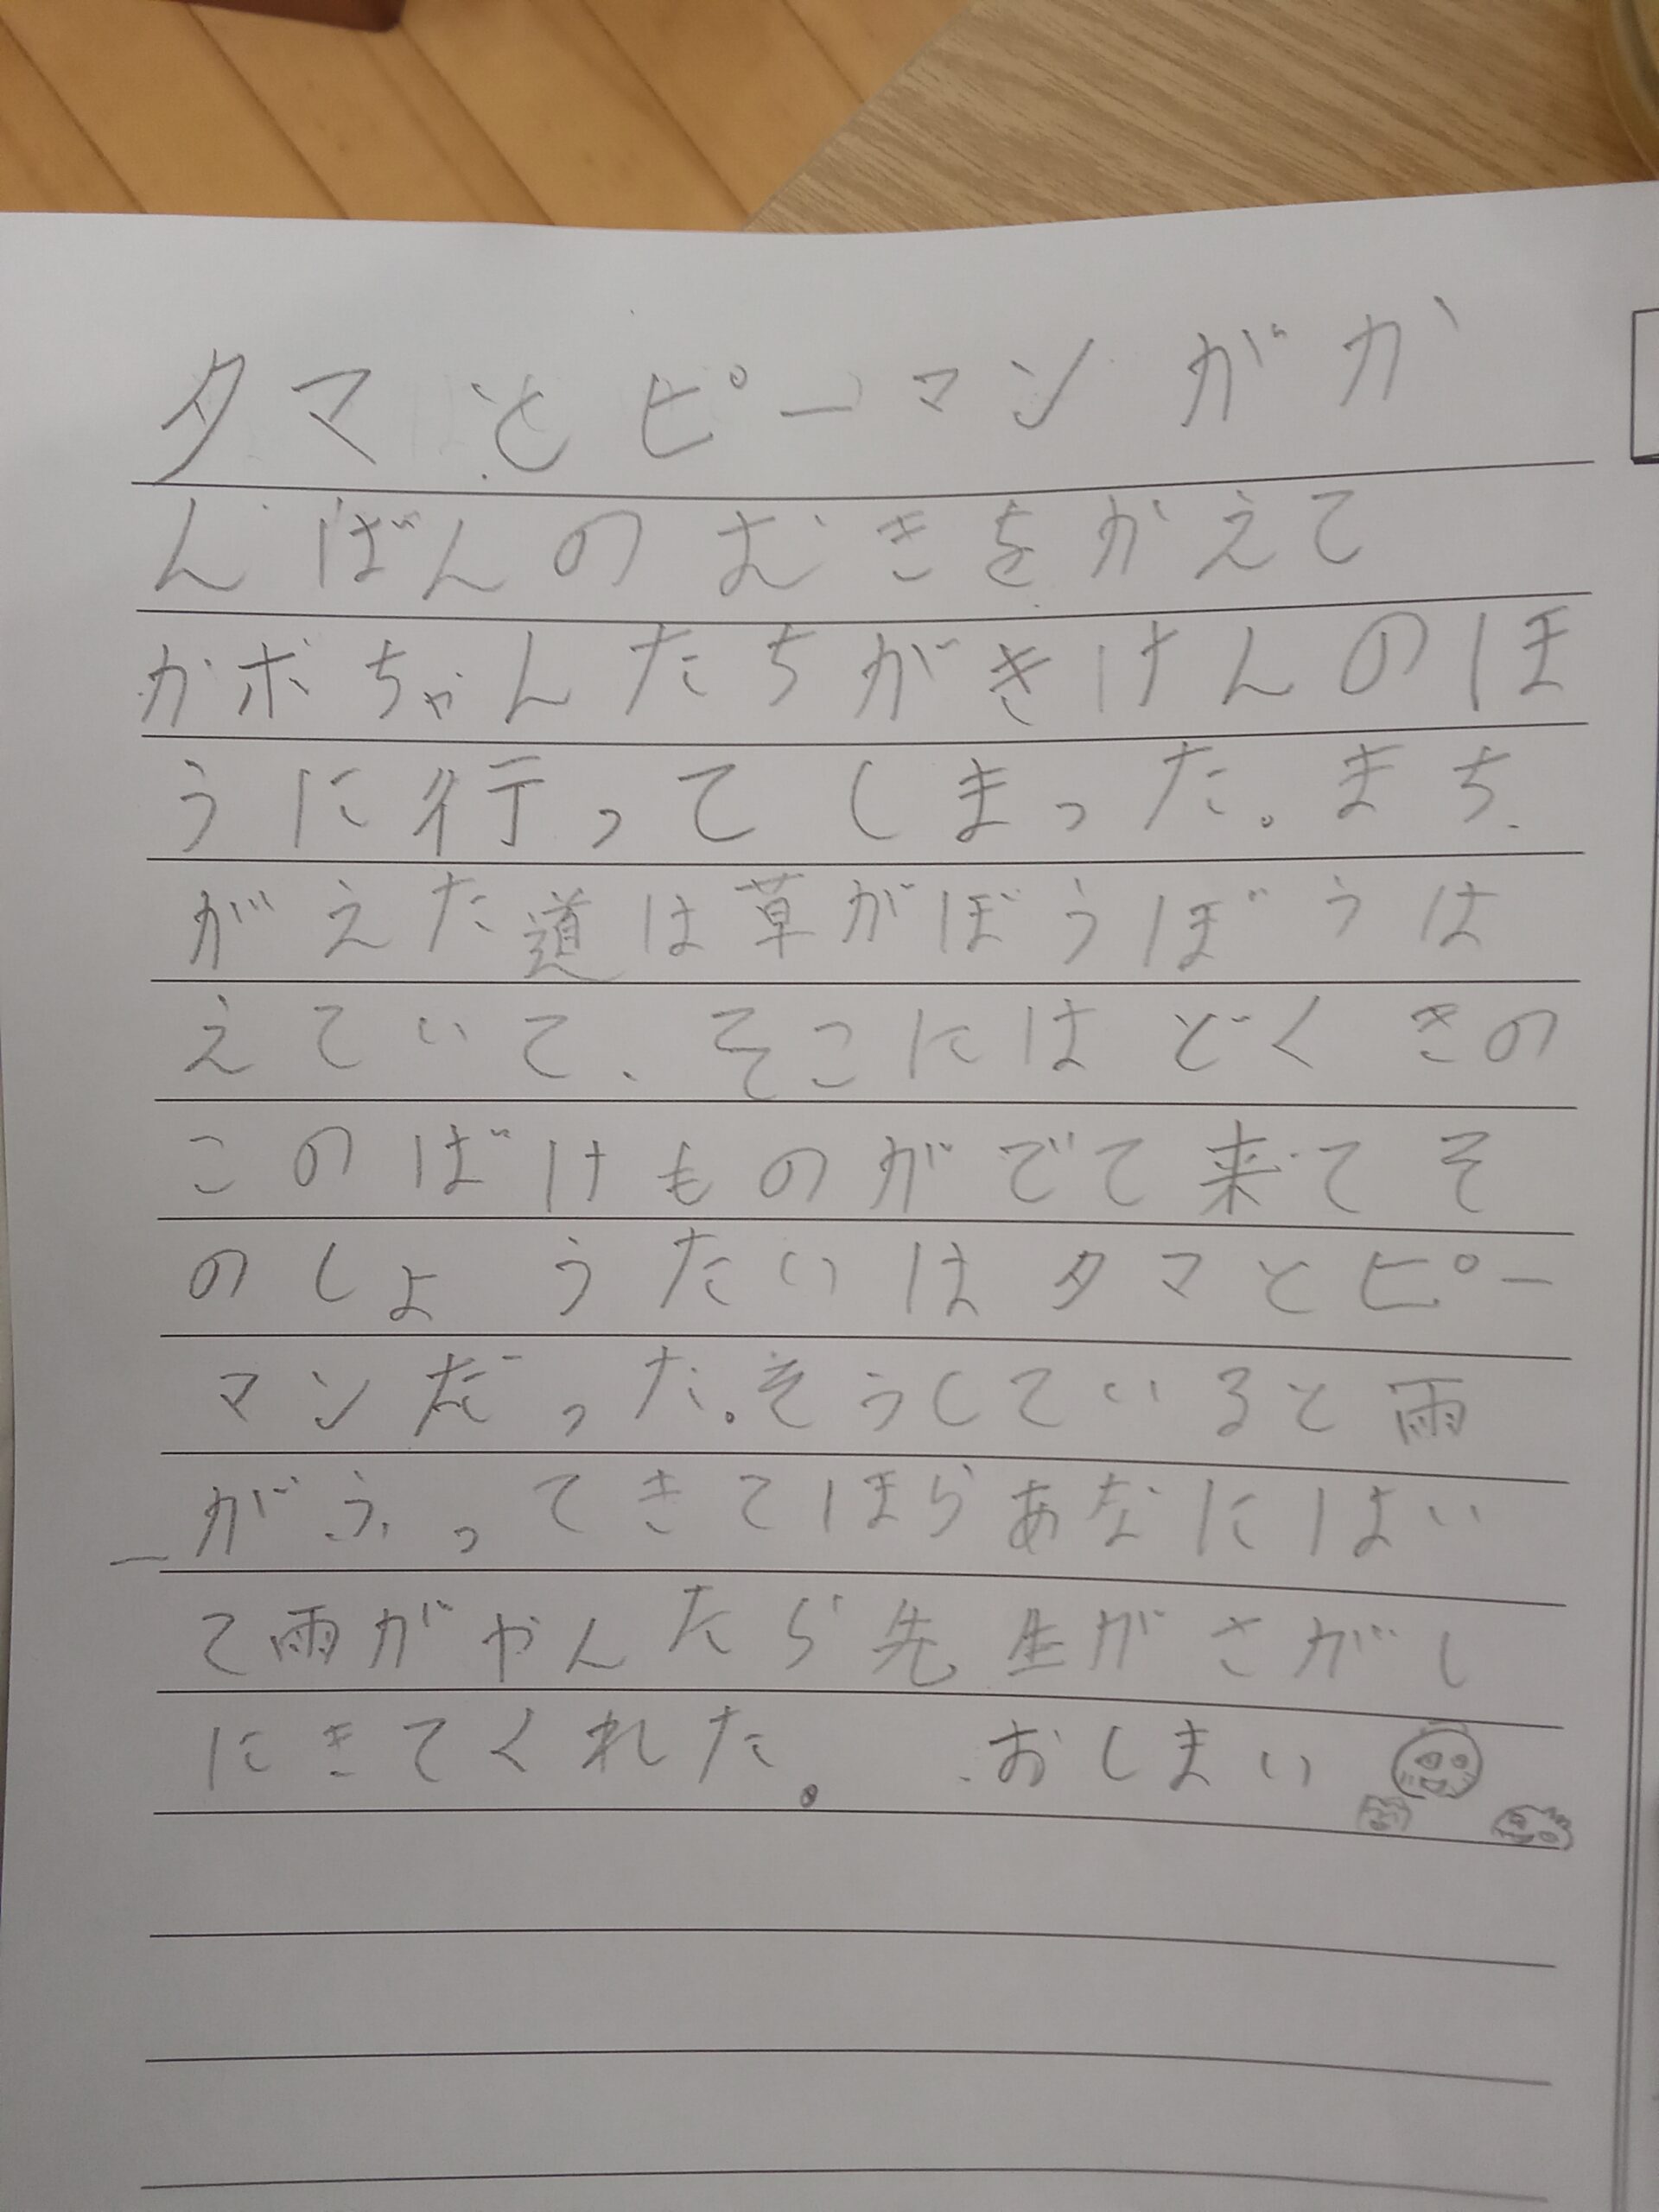 タマとピーマンがか
んばんのむきをかえて
カボちゃんたちがきけんのほ
うに行ってしまった。まち
がえた道は草がぼうぼうは
えていて、そこにはどくきの
このばけものがでて来てそ
のしょうたいはタマとピー
マンだった。そうしていると雨
がふってきてほらあなにはい
て雨がやんたら先生がさがし
にきてくれた。 おしまい